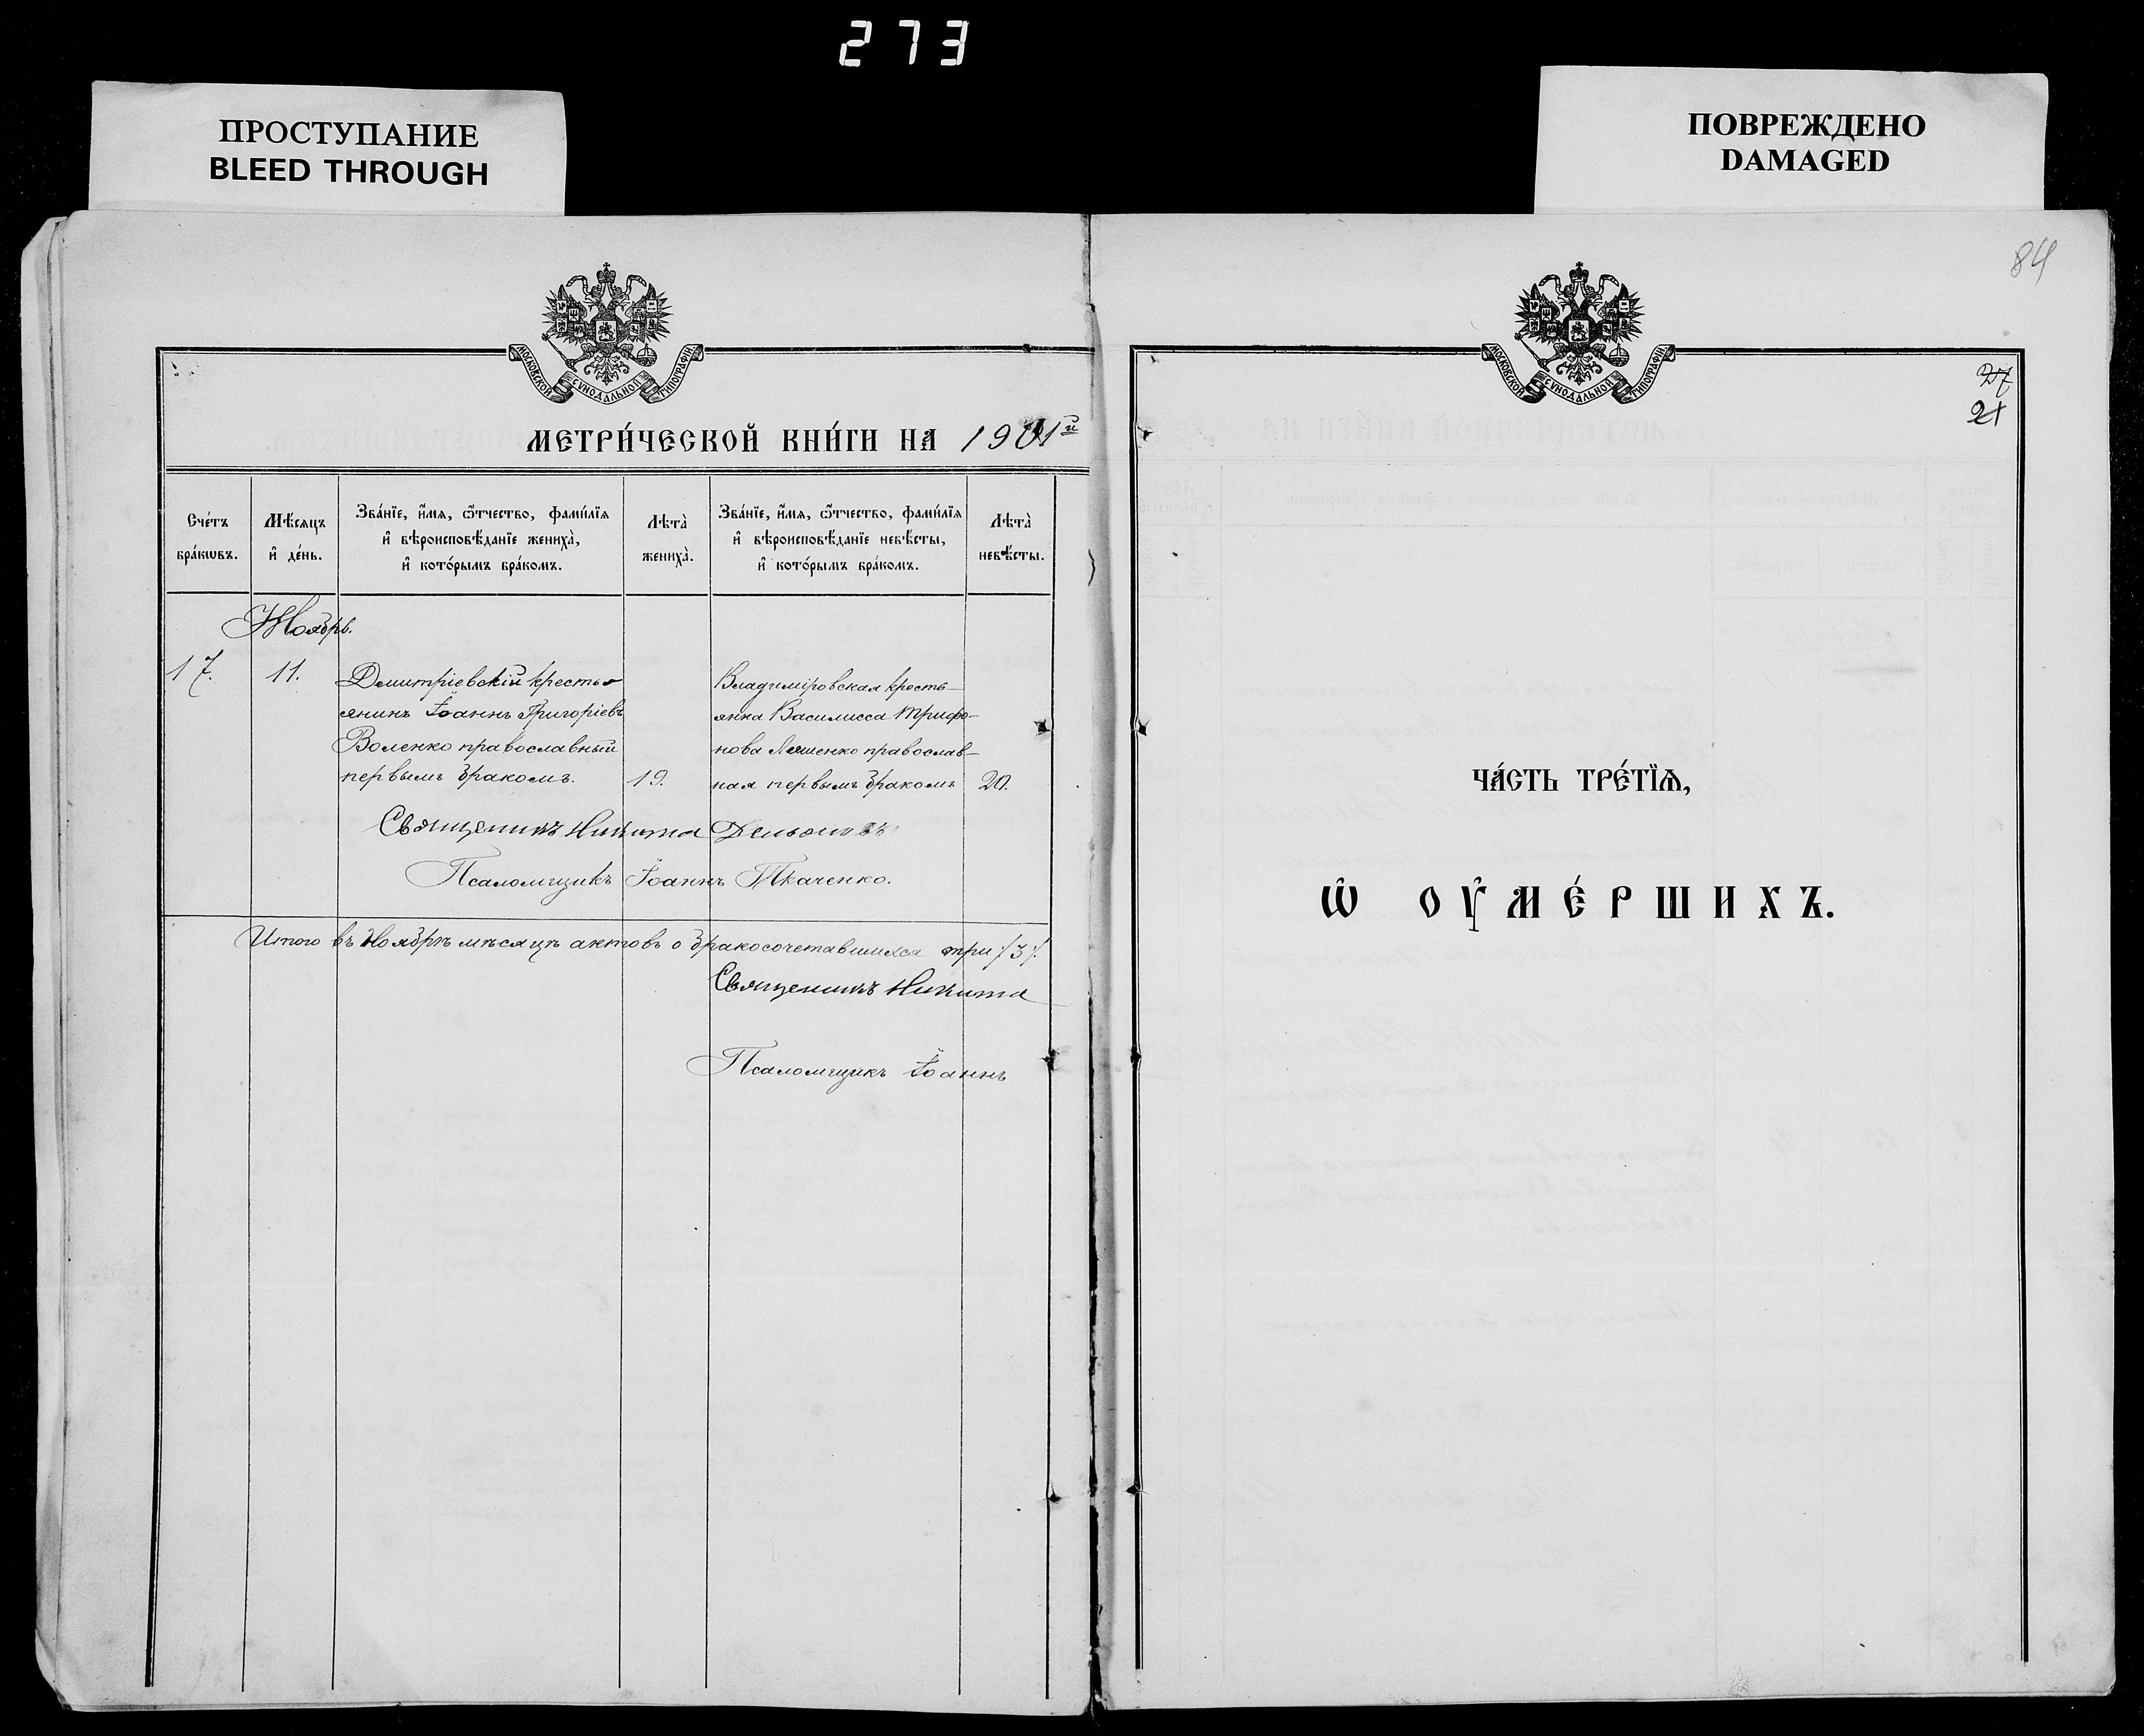 273
ПРОСТУПАНИЕ
BLEED THROUGH
ПОВРЕЖДЕНО
DAMAGED
МОСКОВСКОЙ СѴНОДАЛЬНОЙ ТИПОГРАФІИ
МЕТРИ́ЧЕСКОЙ КНИ́ГИ НА 1901й
Сче́тъ бра́кωвъ.
Мѣ́сяцъ и҆ де́нь.
Зва́нїе, и҆́мя, ѻ҆́тчество, фами́лїя
и҆ вѣроисповѣ́данїе жениха̀,
и҆ кото́рымъ бра́комъ.
Лѣта̀ жениха̀.
Зва́нїе, и҆́мя, ѻ҆́тчество, фами́лїя
и҆ вѣроисповѣ́данїе невѣ́сты,
и҆ кото́рымъ бра́комъ.
Лѣта̀ невѣ́сты.
Ноябрь.
17. 11.
Димитріевскій кресть-
янинъ Іоаннъ Григоріевъ
Воленко православный
первымъ бракомъ.
19.
Владиміровская кресть-
янка Василисса Трифо-
нова Ляшенко православ-
ная первымъ бракомъ
20.
Священникъ Никита
Псаломщикъ Іоаннъ Ткаченко.
Итого въ Ноябрѣ мѣсяцѣ актовъ о бракосочетавшихся три /3/.
Священникъ Никита
Псаломщикъ Іоаннъ
84
МОСКОВСКОЙ СѴНОДАЛЬНОЙ ТИПОГРАФІИ
27
21
ЧА́СТЬ ТРЕ́ТЇѦ,
Ѡ҆ ОУ҆МЕ́РШИХЪ.